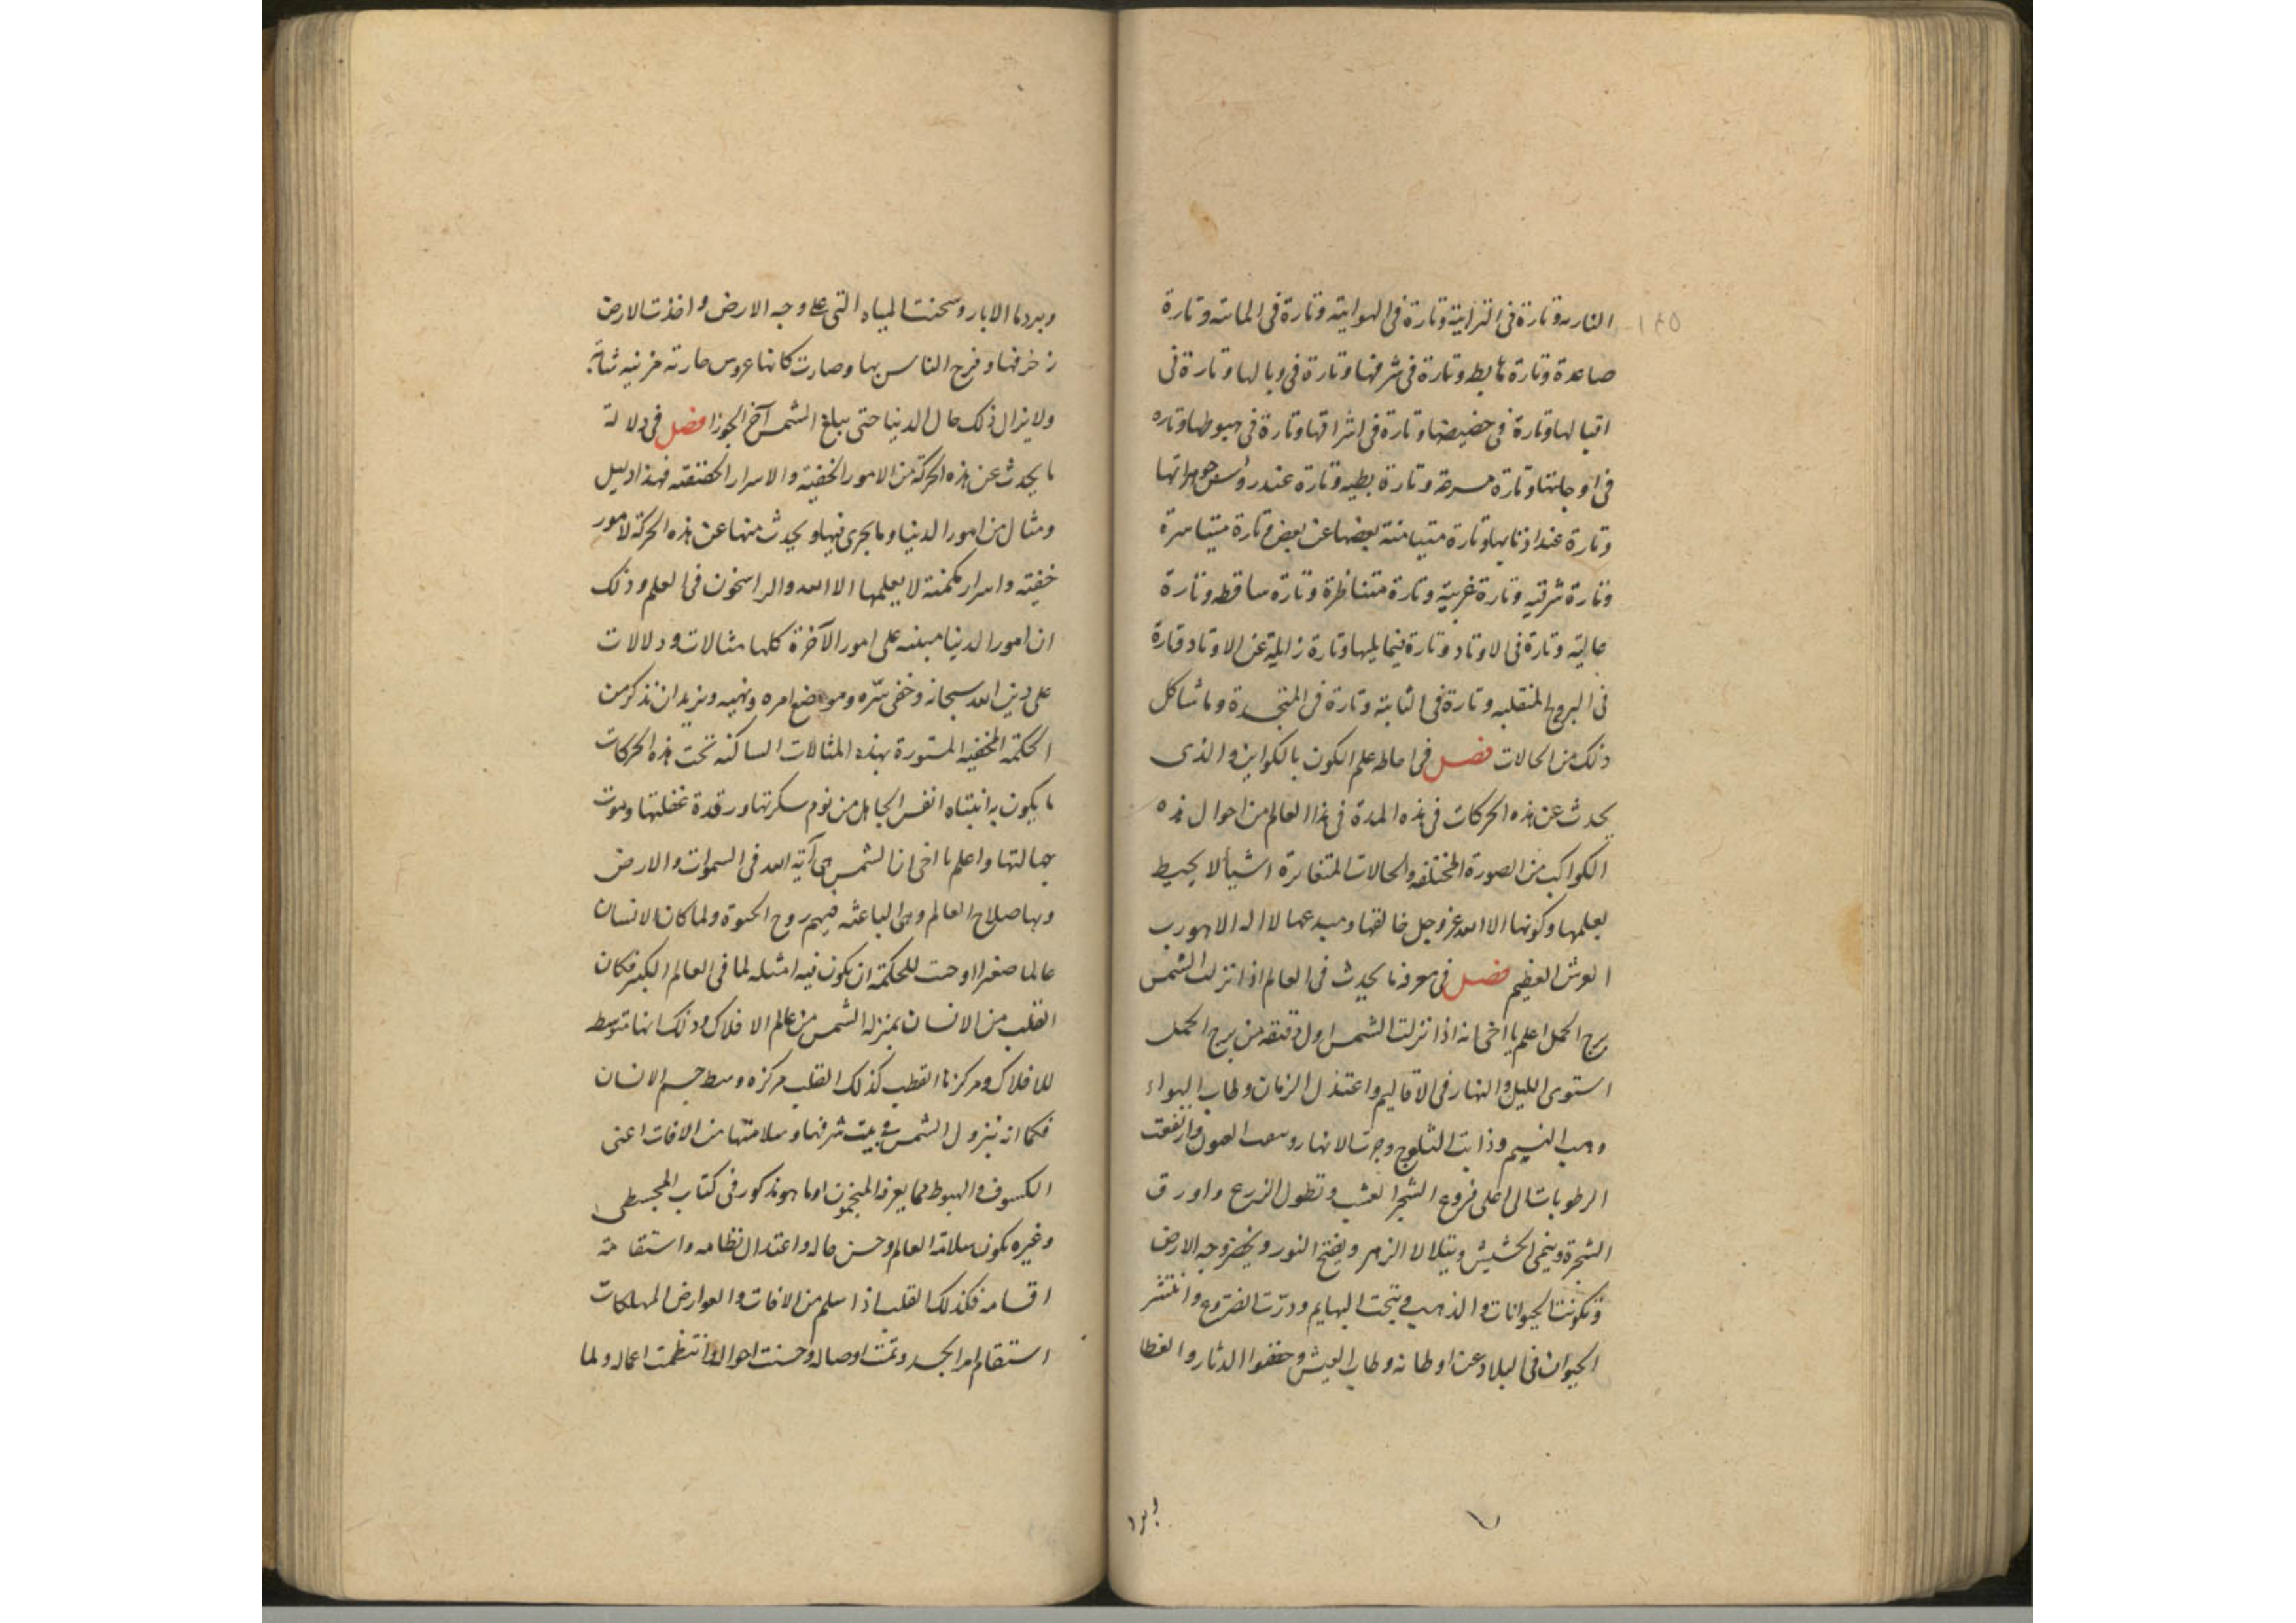 الناريه وتارة فى الترابية وتارة فى الهوايية وتارة فى المائية وتارة
صاعدة وتارة هابطه وتارة فى شرفها وتارة فى وبالها وتارة فى
اقبالها وتارة فى حضيضها وتارة فى اشراقها وتارة فى هبوطها وتاره
فى اوجاتها وتارة مسرعة وتارة بطيه وتارة عند رؤس جوزهراتها
وتارة عند اذنابها وتارة متيامنة بعضها عن بعض وتارة متياسرة
وتارة شرقيه وتارة غربية وتارة متناظرة وتارة ساقطه وتارة
عالية وتارة فى الاوتاد وتارة فيما يليها وتارة زايلة عن الاوتاد وتارة
فى البروج المنقلبه وتارة فى الثابتة وتارة فى المتجسدة وما شاكل
ذلك من الحالات فصل فى احاطه علم الكون بالكواين والذى
يحدث عن هذه الحركات فى هذه المدة فى هذا العالم من احوال هذه
الكواكب من الصورة المختلفه والحالات المتغايرة اشيأ لا يحيط
بعلمها وكونها الا الله عز وجل خالقها ومبدعها لا اله الا هو رب
العرش العظيم فصل فى معرفة ما يحدث فى العالم اذا نزلت الشمس
برج الحمل اعلم يا اخى انه اذا نزلت الشمس اول دقيقه من برج الحمل
استوى الليل والنهار فى الاقاليم واعتدل الزمان وطاب الهواء
وهب النسيم وذابت الثلوج وجرت الانهار ونبعت العيون وارتفعت
الرطوبات الى اعلى فروع الشجر العشب وتطول الزرع واورق
الشجرة وينمى الحشيش ويتلالا الزهر ويفتح النور ويخضر وجه الارض
وتكونت الحيوانات والذهب ونتجت البهايم ودرّت الضروع وانتشر
الحيوان فى البلاد عن اوطانه وطاب العيش وخففوا الدثار والغطا
وبرد
وبرد ما الابار وسخنت المياه التى على وجه الارض واخذت الارض
زخرفها وفرح الناس بها وصارت كانها عروس جارية مزينه شابة
ولا يزال ذلك حال الدنيا حتى يبلغ الشمس آخر الجوزا فصل فى دلالة
ما يحدث عن هذه الحركة من الامور الخفية والاسرار فهذا دليل
ومثال من امور الدنيا وما يجرى فيها ويحدث منها عن هذه الحركة لامور
خفيته واسرار مكمنة لا يعلمها الا الله والراسخون فى العلم وذلك
ان امور الدنيا مبنيه على امور الآخرة كلها مثالات ودلالات
على دين الله سبحانه وخفى سّره وموضع امره ونهيه ونريد ان نذكر من
الحكمة المخفيه المستورة بهذه المثالات الساكنه تحت هذه الحركات
ما يكون به انتباه انفس الجاهل من نوم سكرتها ورقدة غفلتها وموت
جهالتها واعلم يا اخى ان الشمس هى آية الله فى السموات والارض
وبها صلاح العالم وهى الباعثه فيهم روح الحيوة ولما كان الانسان
عالما صغيرا اوجبت الحكمة ان يكون فيه امثله لما فى العالم الكبير فكان
القلب من الانسان بمنزلة الشمس من عالم الافلاك وذلك انها متوسطه
للافلاك ومركزها القطب كذلك القلب مركزه وسط جسم الانسان
فكما انه بنزول الشمس فى بيت شرفها وسلامتها من الافات اعنى
الكسوف والهبوط مما يعرفه المنجمون او ما هو مذكور فى كتاب المجسطى
وغيره يكون سلامة العالم وحسن حاله واعتدال نظامه واستقامة
اقسامه فكذلك القلب اذا سلم من الافات والعوارض المهلكات
استقام امر الجسد وتمت اوصاله وحسنت احواله وانتظمت اعماله ولما